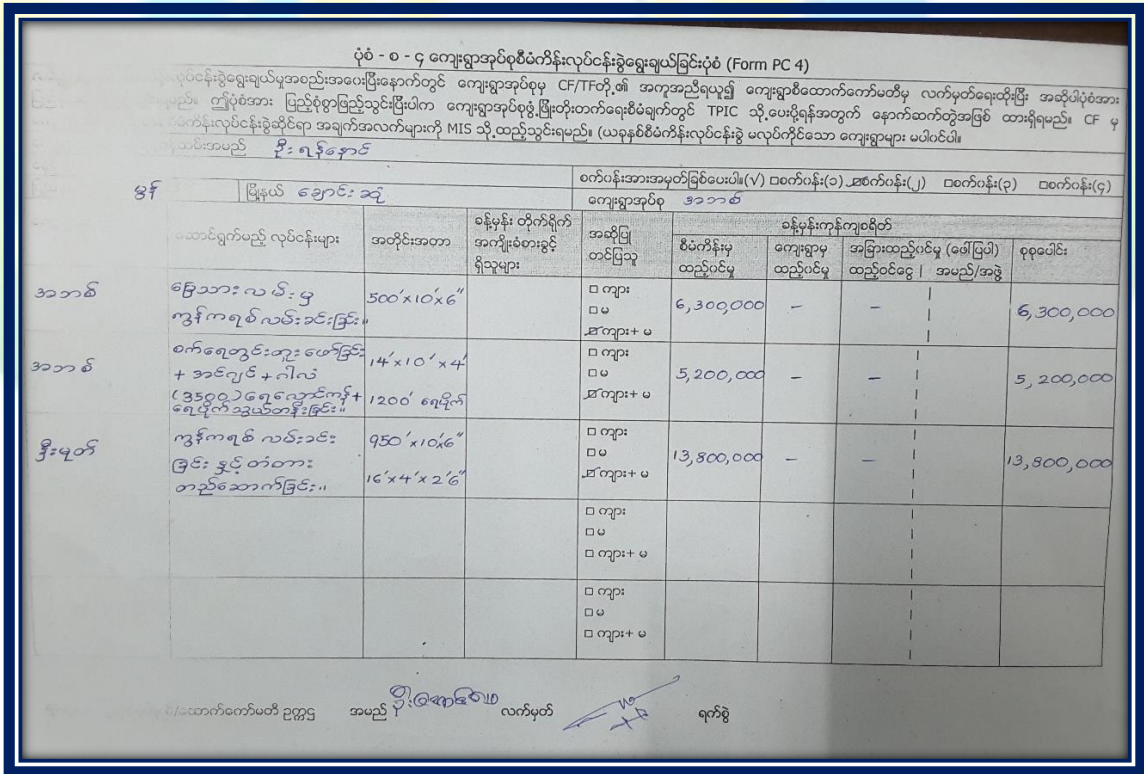 ပုံစံ - စ - ၄ ကျေးရွာအုပ်စုစီမံကိန်းလုပ်ငန်းခွဲရွေးချယ်ခြင်းပုံစံ (Form PC 4)
လုပ်ငန်းခွဲရွေးချယ်မှုအစည်းအဝေးပြီးနောက်တွင် ကျေးရွာအုပ်စုမှ CF/TFတို့၏ အကူအညီရယူ၍ ကျေးရွာစီထောက်ကော်မတီမှ လက်မှတ်ရေးထိုးပြီး အဆိုပါပုံစံအား
ရမည်။ ဤပုံစံအား ပြည့်စုံစွာဖြည့်သွင်းပြီးပါက ကျေးရွာအုပ်စုဖွံ့ဖြိုးတိုးတက်ရေးစီမံချက်တွင် TPIC သို့ပေးပို့ရန်အတွက် နောက်ဆက်တွဲအဖြစ် ထားရှိရမည်။ CF မှ
စီမံကိန်းလုပ်ငန်းခွဲဆိုင်ရာ အချက်အလက်များကို MIS သို့ထည့်သွင်းရမည်။ (ယခုနှစ်စီမံကိန်းလုပ်ငန်းခွဲ မလုပ်ကိုင်သော ကျေးရွာများ မပါဝင်ပါ။
အမည် ဦးရန်နောင်
စက်ဝန်းအားအမှတ်ခြစ်ပေးပါ။(√) □စက်ဝန်း(၁) ☑စက်ဝန်း(၂) □စက်ဝန်း(၃) □စက်ဝန်း(၄)
မွန် မြို့နယ် ချောင်းဆုံ ကျေးရွာအုပ်စု အဘစ်
ဆောင်ရွက်မည့် လုပ်ငန်းများ
အတိုင်းအတာ
ခန့်မှန်း တိုက်ရိုက်
အကျိုးခံစားခွင့်
ရှိသူများ
အဆိုပြု
တင်ပြသူ
ခန့်မှန်းကုန်ကျစရိတ်
စီမံကိန်းမှ
ထည့်ဝင်မှု
ကျေးရွာမှ
ထည့်ဝင်မှု
အခြားထည့်ဝင်မှု (ဖော်ပြပါ)
ထည့်ဝင်ငွေ | အမည်/အဖွဲ့
စုစုပေါင်း
အဘစ်
မြေသားလမ်းမှ
ကွန်ကရစ်လမ်းခင်းခြင်း။
500'x10'x6"
□ ကျား
□ မ
☑ ကျား+ မ
6,300,000 – – 6,300,000
အဘစ်
စက်ရေတွင်းတူးဖော်ခြင်း
+ အင်ဂျင် + ဂါလံ
(3500) ရေလှောင်ကန်+
ရေပိုက်သွယ်တန်းခြင်း။
14'x10'x4'
1200' ရေပိုက်
□ ကျား
□ မ
☑ ကျား+ မ
5,200,000 – – 5,200,000
နှီးမုတ်
ကွန်ကရစ်လမ်းခင်း
ခြင်း နှင့် တံတား
တည်ဆောက်ခြင်း။
950'x10'x6"
16'x4'x2'6"
□ ကျား
□ မ
☑ ကျား+ မ
13,800,000 – – 13,800,000
□ ကျား
□ မ
□ ကျား+ မ
□ ကျား
□ မ
□ ကျား+ မ
ထောက်ကော်မတီ ဥက္ကဋ္ဌ အမည် လက်မှတ် ရက်စွဲ